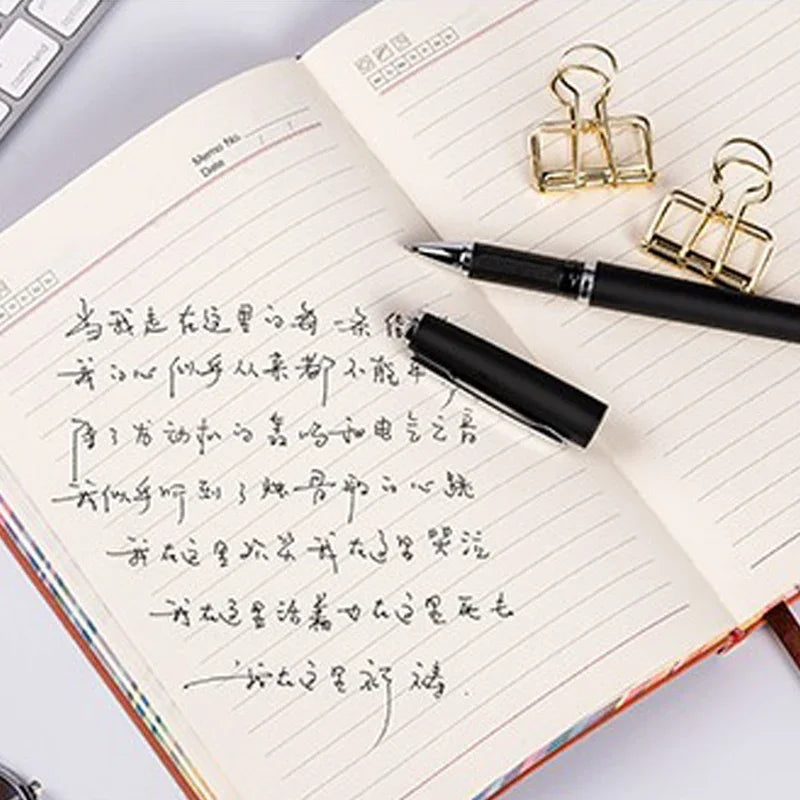 Memo No.
Date / /
当我走在这里的每一条街
我的心似乎从来都不能平
除了发动机的轰鸣和电气之音
我似乎听到了烛骨般的心跳
我在这里欢笑我在这里哭泣
我在这里活着也在这里死去
我在这里祈祷.
command